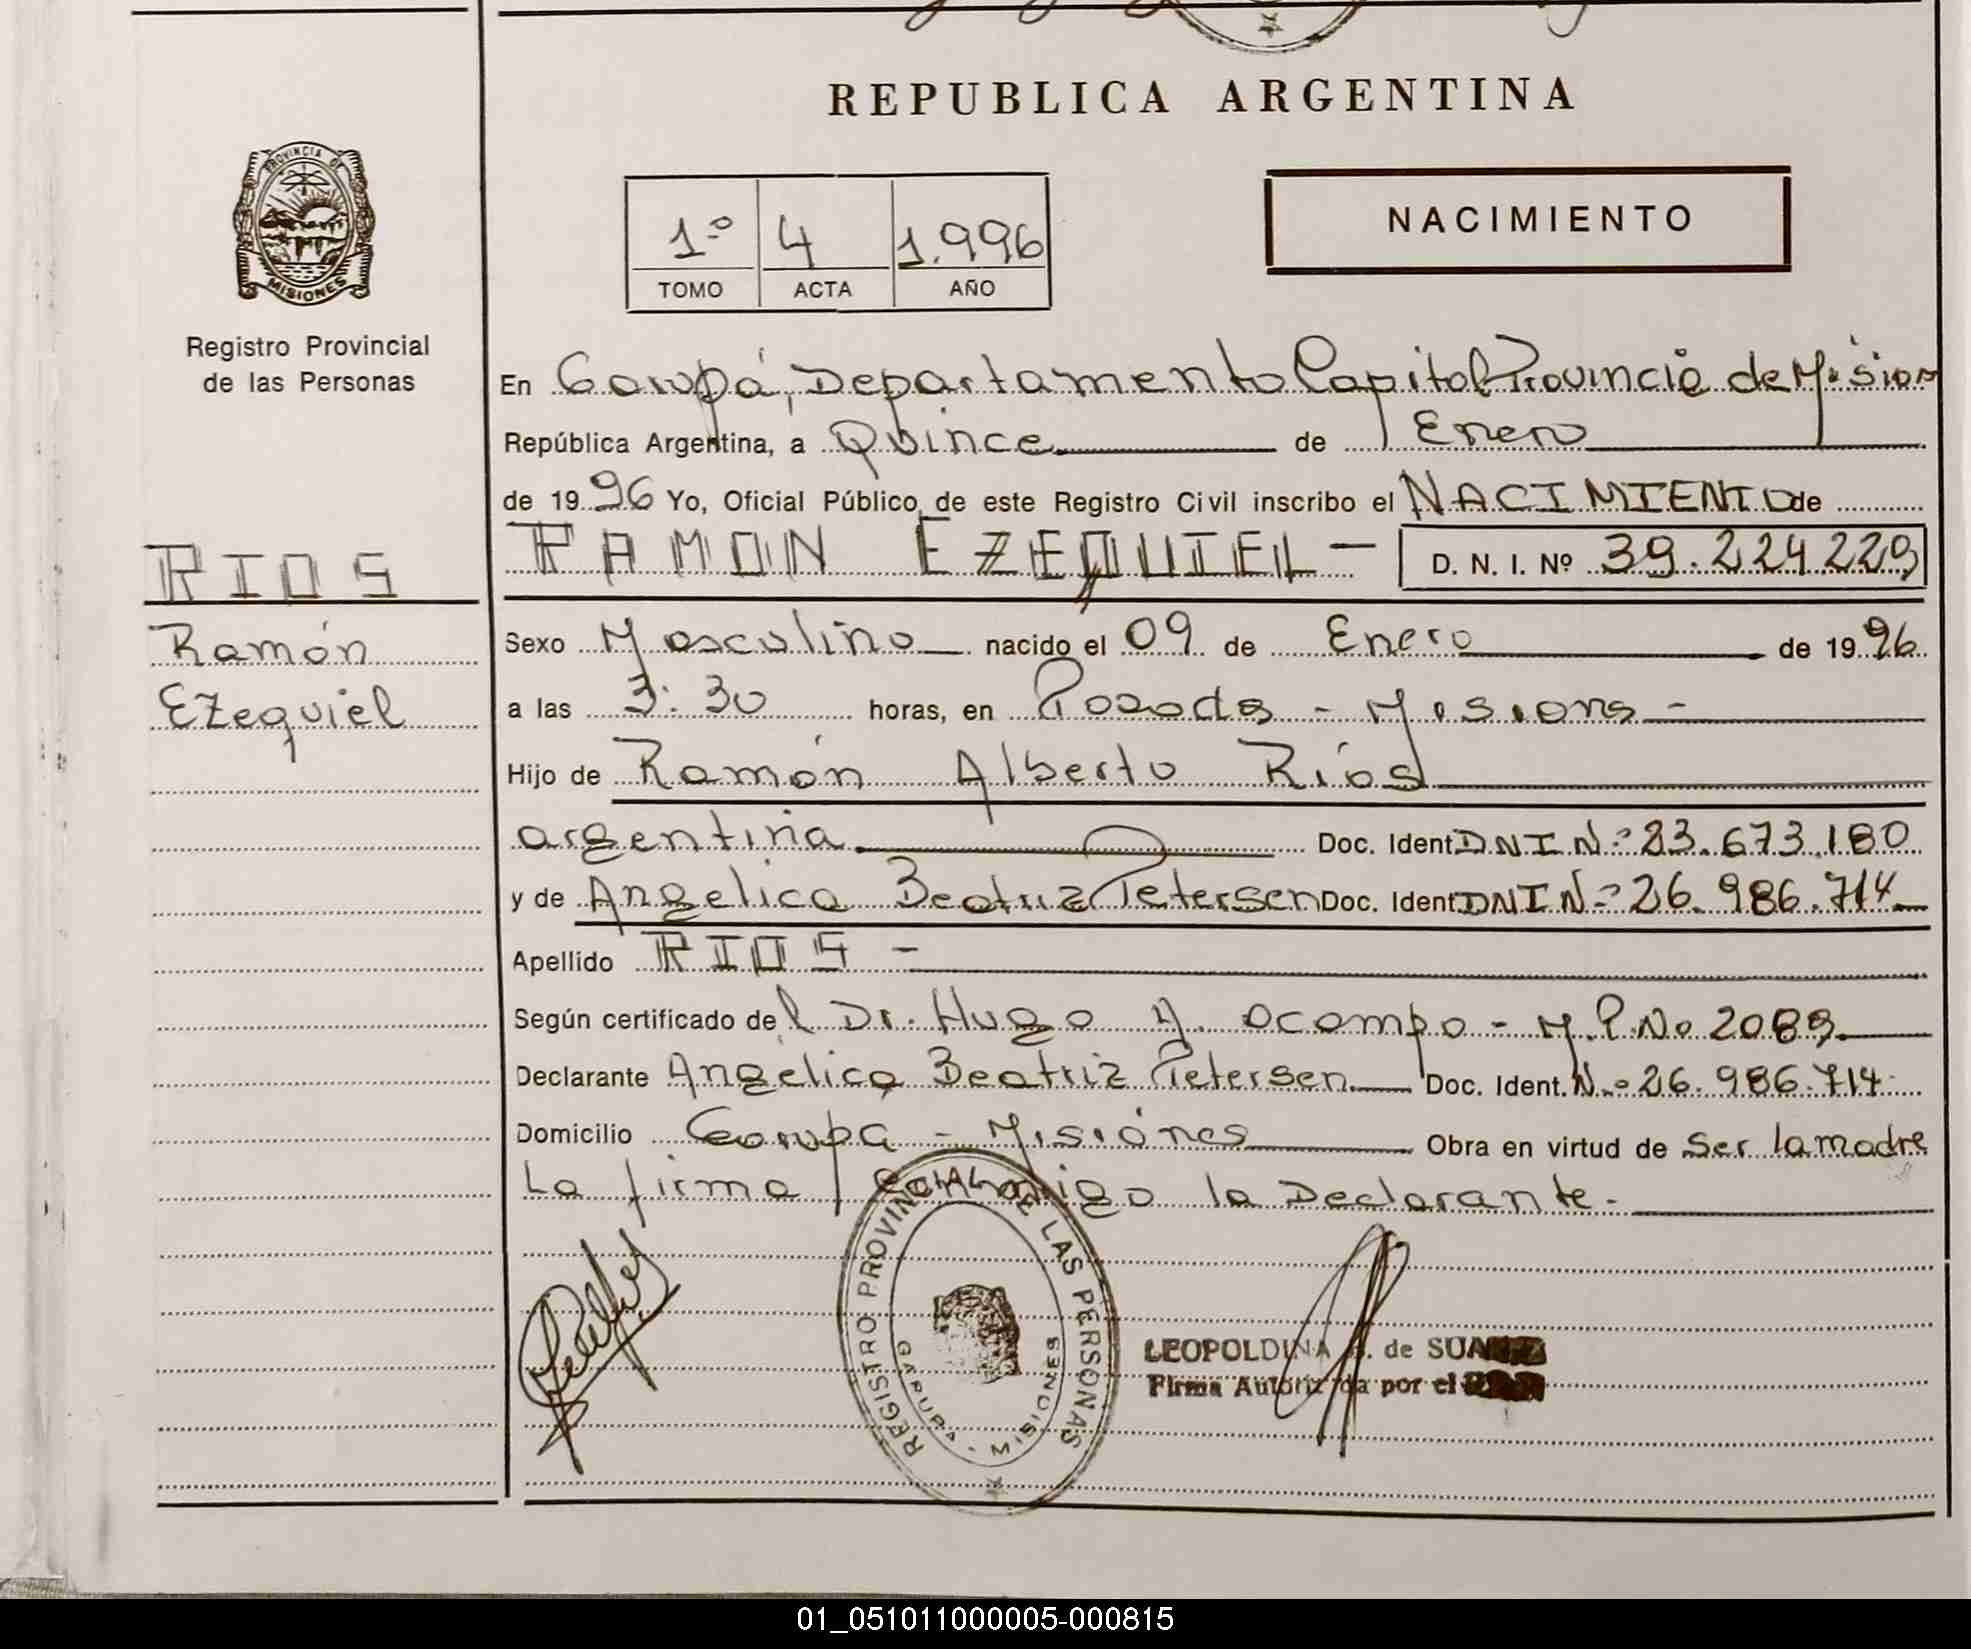 REPUBLICA ARGENTINA
PROVINCIA DE
MISIONES
Registro Provincial
de las Personas
1º 4 1.996
TOMO ACTA AÑO
NACIMIENTO
En Garupá, Departamento Capital Provincia de Mision
República Argentina, a Quince de Enero
de 1996 Yo, Oficial Público de este Registro Civil inscribo el NACIMIENTO de
RIOS
RAMON EZEQUIEL - D. N. I. Nº 39.224.229
Ramón
Ezequiel
Sexo Masculino nacido el 09 de Enero de 1996
a las 3:30 horas, en Posadas - Misiones -
Hijo de Ramón Alberto Ríos
argentina Doc. Ident DNI Nº 23.673.180
y de Angelica Beatriz Petersen Doc. Ident DNI Nº 26.986.714
Apellido RIOS -
Según certificado del Dr. Hugo A. Ocampo - M.P.No 2089
Declarante Angélica Beatriz Petersen Doc. Ident. Nº 26.986.714
Domicilio Garupa - Misiones Obra en virtud de Ser la madre
La firma conmigo la Declarante.-
REGISTRO PROVINCIAL DE LAS PERSONAS
GARUPA - MISIONES
LEOPOLDINA de SUAREZ
Firma Autorizada por el
01_051011000005-000815